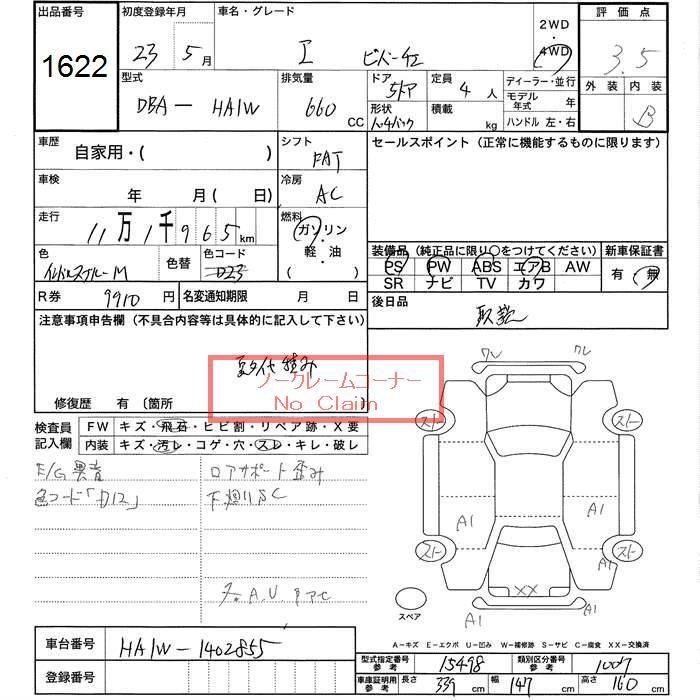 出品番号 初度登録年月 車名・グレード 2WD ・ 4WD 評価点
1622 23 5月 I ビバーチェ 3.5
型式 排気量 ドア 定員 ディーラー・並行 外装 内装
DBA－HA1W 660 CC 5ドア 4人 モデル年式 年 B
形状 積載 kg ハンドル 左・右
車歴 自家用・( ) シフト FAT セールスポイント (正常に機能するものに限ります)
車検 年 月( 日) 冷房 AC
走行 11万1千965km 燃料 ガソリン・軽・油 ( )
色 M 色替 色コード D23
装備品 (純正品に限り○をつけてください) 新車保証書
PS PW ABS エアB AW 有・無
SR ナビ TV カワ
R券 9910円 名変通知期限 月 日 後日品 取説
注意事項申告欄 (不具合内容等は具体的に記入して下さい)
積み
ノークレームコーナー
No Claim
修復歴 有 〔箇所
検査員記入欄 FW キズ・飛石・ヒビ割・リペア跡・X要
内装 キズ・汚レ・コゲ・穴・スレ・キレ・破レ
E/G異音 ロアサポート歪み
色コード「D12」 下廻りS C
A.U.
クレ クレ
スト スト
A1 A1
スト スト
A1
XX
A1 A1
スペア
A－キズ E－エクボ U－凹み W－補修跡 S－サビ C－腐食 XX－交換済
車台番号 HA1W－1402855
型式指定番号 参考 15498 類別区分番号 参考 1007
登録番号
車庫証明用 参考 長さ 339cm 幅 147cm 高さ 160cm